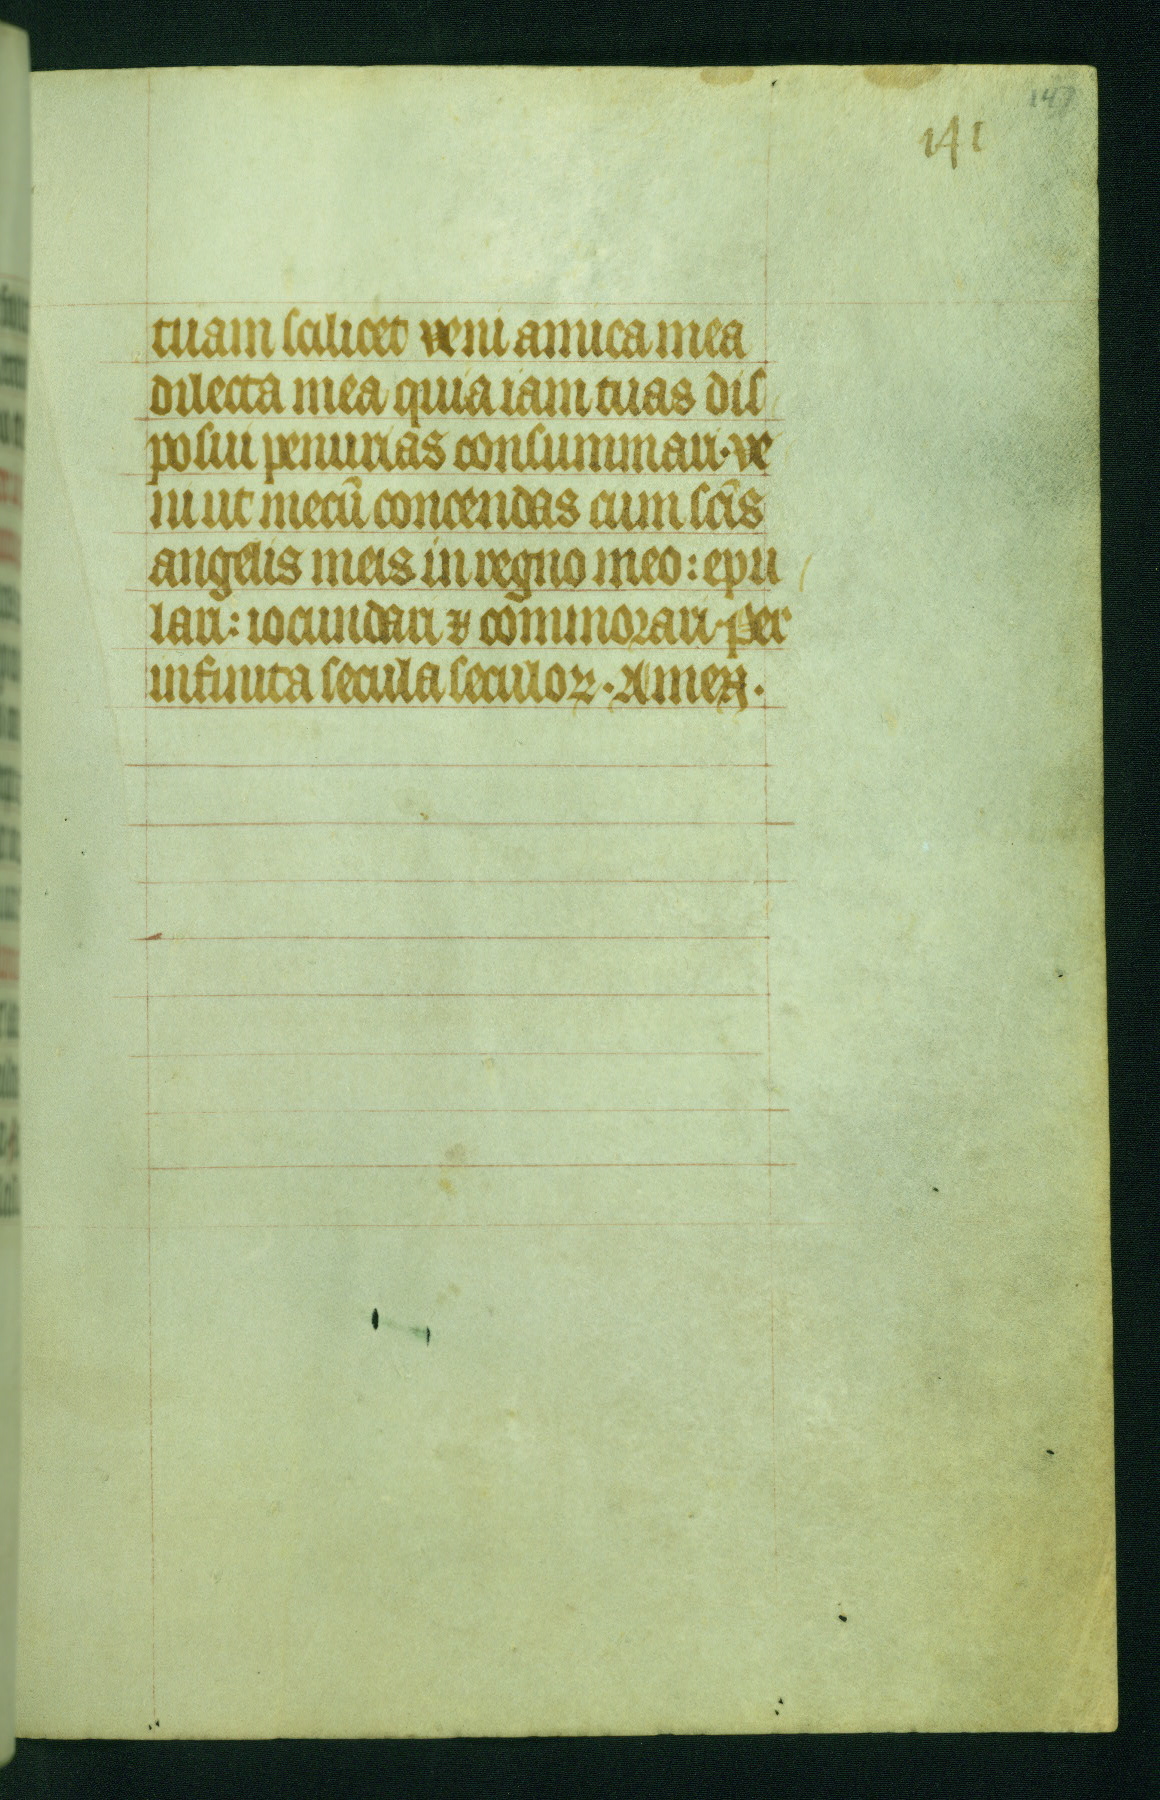 147
141
tuam scilicet veni amica mea
dilecta mea quia iam tuas dis
posui penurias consummari · ve
ni ut mecū concendas cum scīs
angelis meis in regno meo : epu
lari : iocundari ⁊ cōminorari · per
infinita secula seculoꝝ · Amen ·